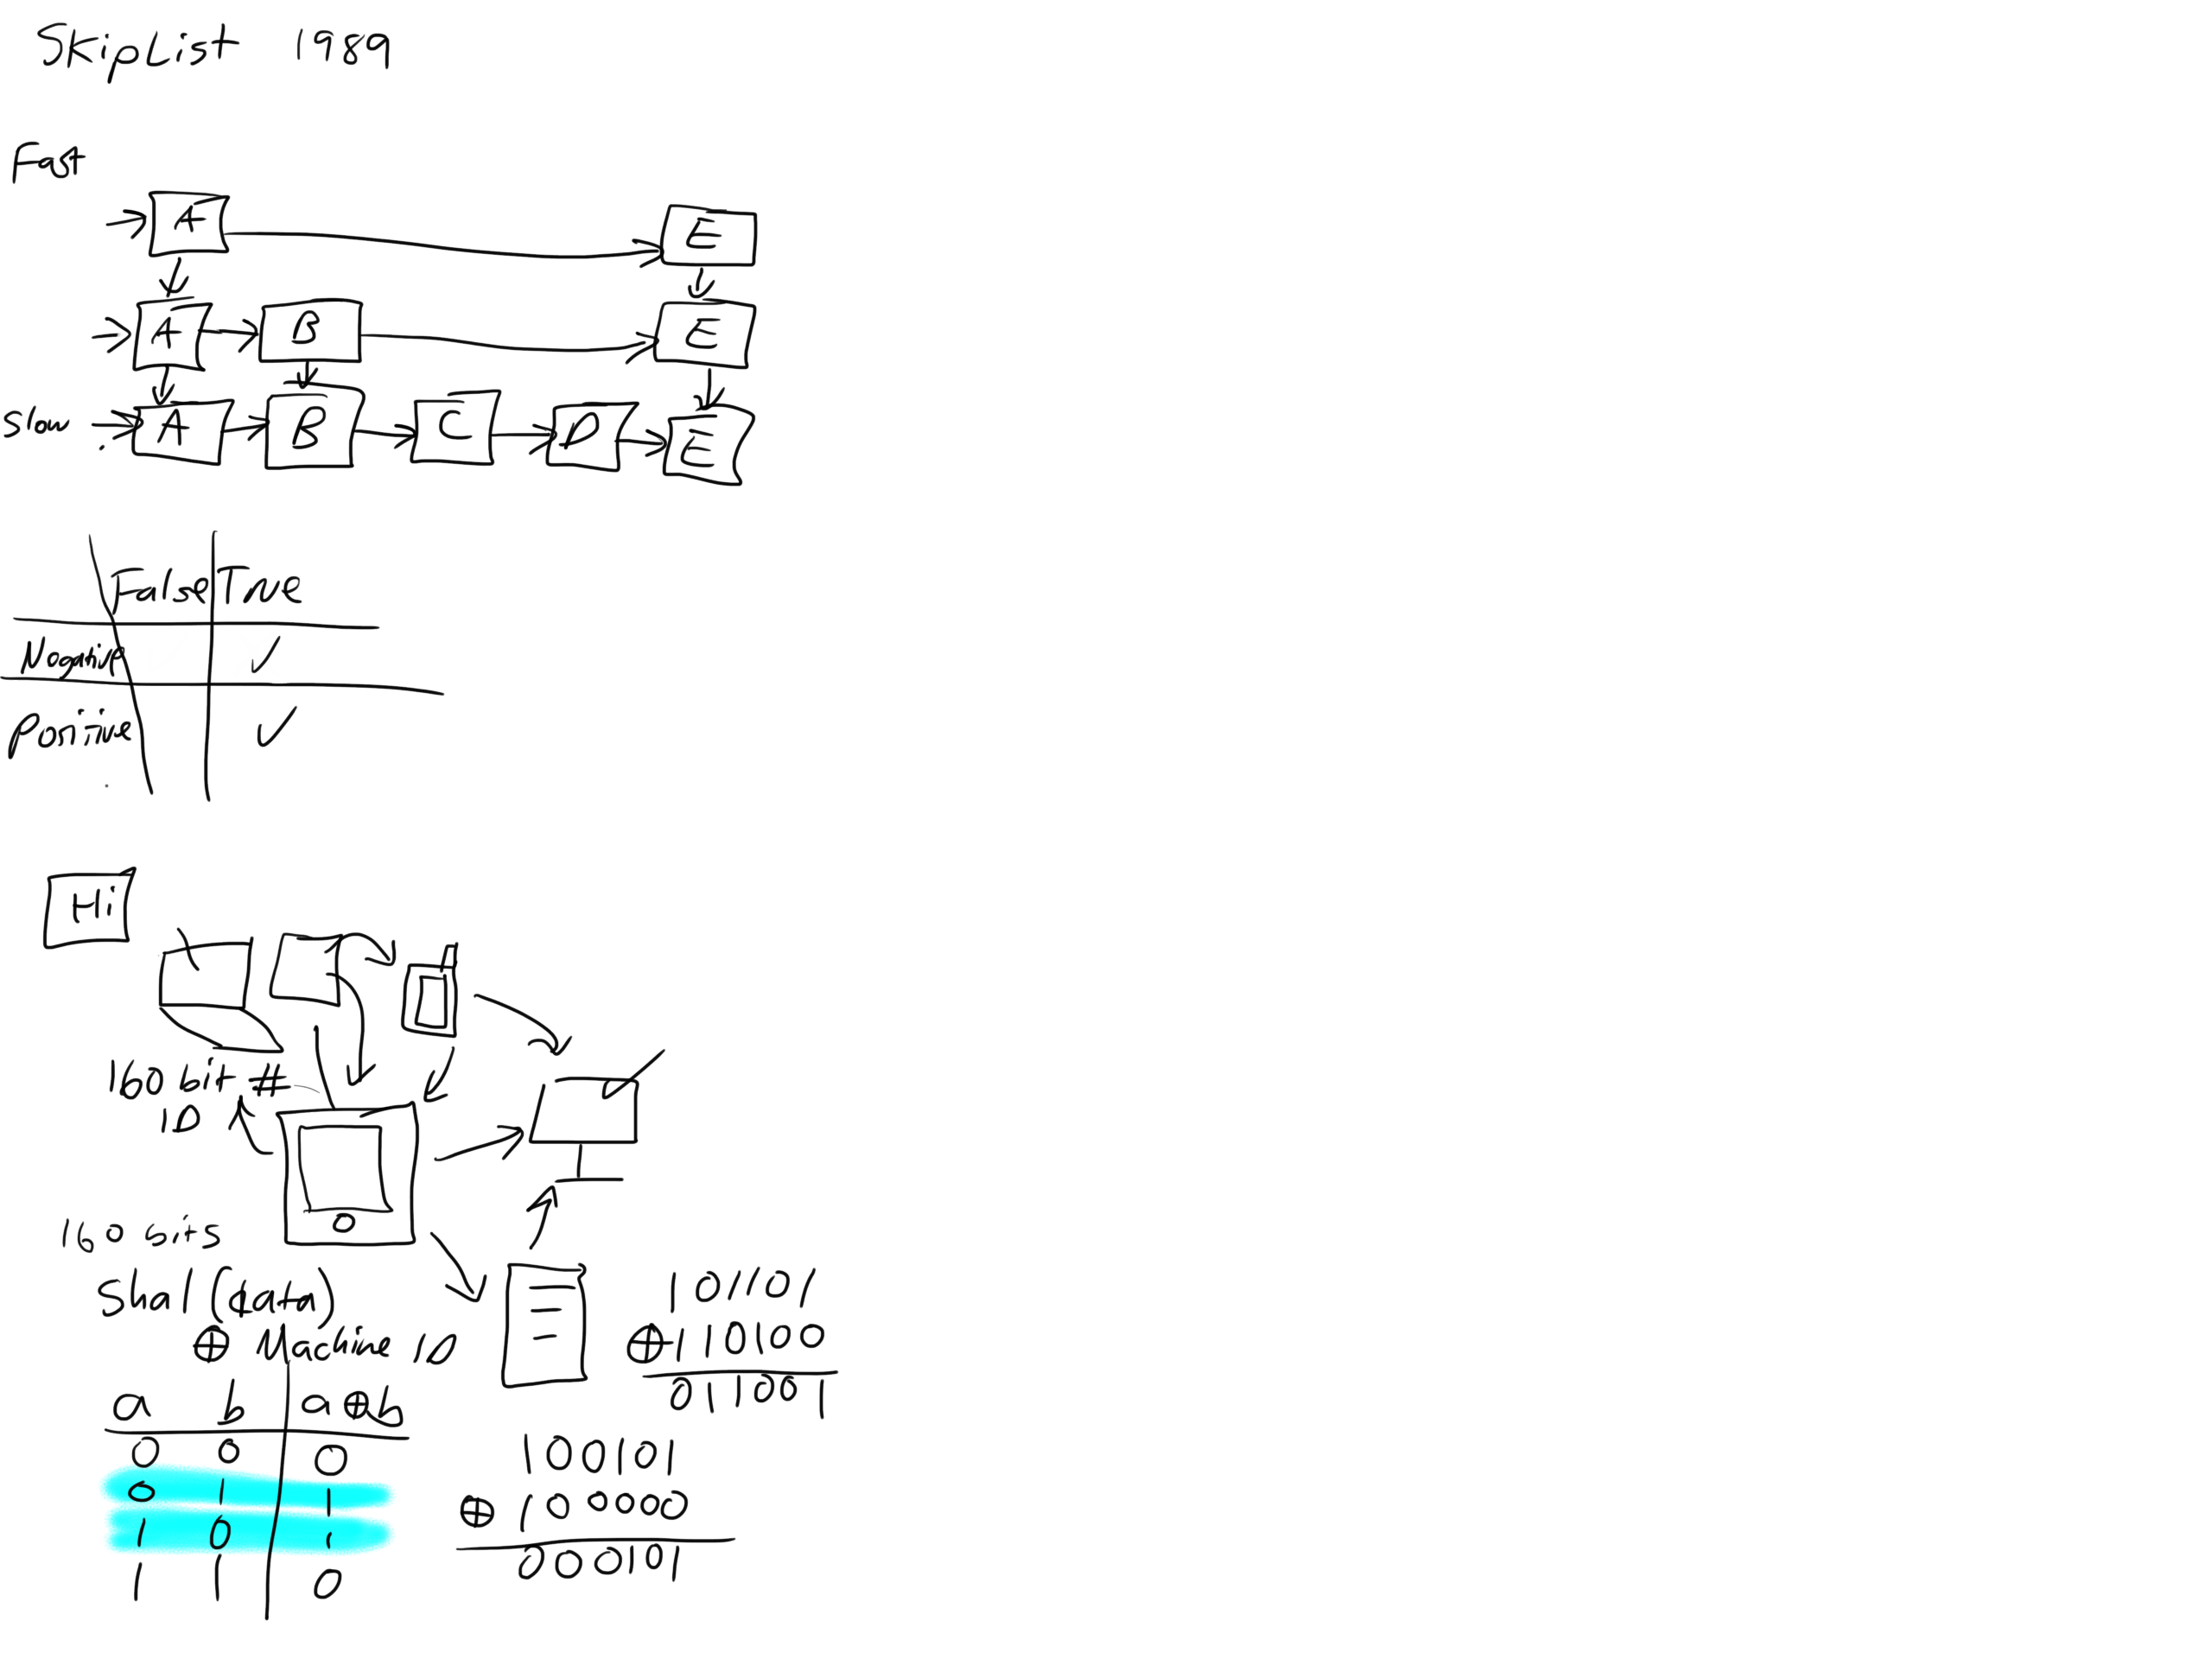 SkipList 1989
Fast
A E
A B E
Slow A B C D E
False True
Negative ✓
Positive ✓
Hi
160 bit #
ID
160 bits
Sha1(data)
⊕ Machine ID
101101
⊕ 110100
011001
a b a⊕b
0 0 0
0 1 1
1 0 1
1 1 0
100101
⊕ 100000
000101